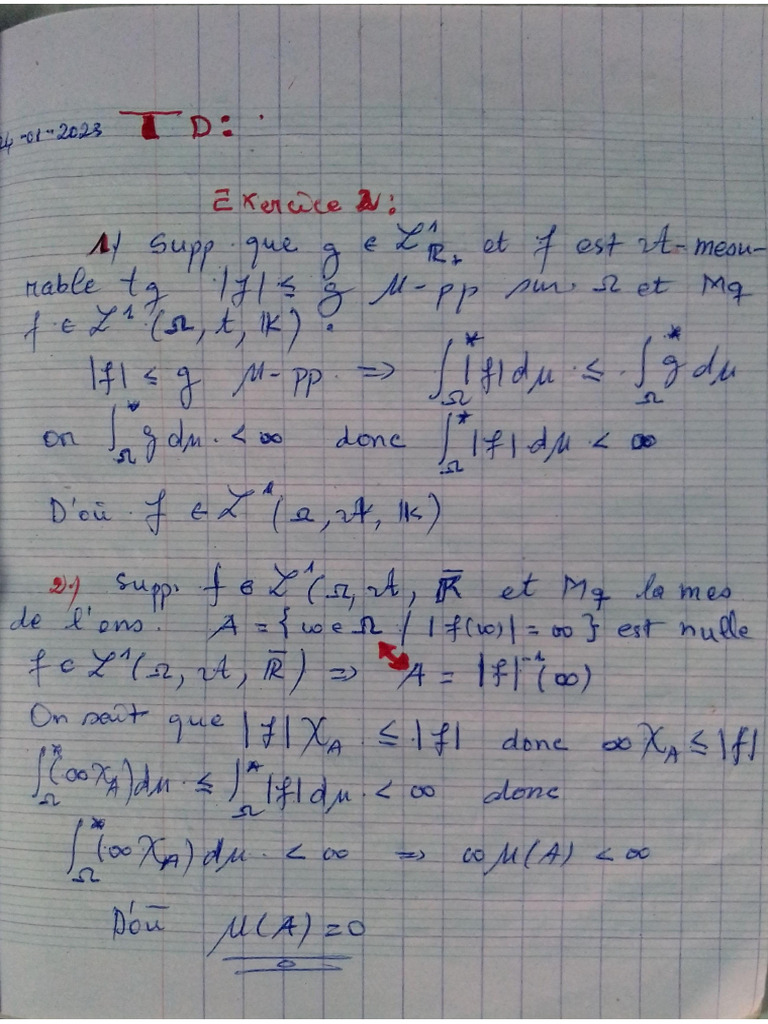 24-01-2023 TD:
Exercice 2:
1) Supp que g ∈ ℒ¹_ℝ₊ et f est 𝒜-mesu-
rable tq |f| ≤ g μ-pp sur Ω et Mq
f ∈ ℒ¹(Ω, 𝒜, 𝕂) :
|f| ≤ g μ-pp ⇒ ∫*_Ω |f| dμ ≤ ∫*_Ω g dμ
on ∫*_Ω g dμ < ∞ donc ∫*_Ω |f| dμ < ∞
D'où f ∈ ℒ¹(Ω, 𝒜, 𝕂)
2) Supp. f ∈ ℒ¹(Ω, 𝒜, ℝ̅ et Mq la mes
de l'ens. A = {ω ∈ Ω / |f(ω)| = ∞} est nulle
f ∈ ℒ¹(Ω, 𝒜, ℝ̅) ⇒ A = |f|⁻¹(∞)
On sait que |f| χ_A ≤ |f| donc ∞ χ_A ≤ |f|
∫*_Ω (∞χ_A) dμ ≤ ∫*_Ω |f| dμ < ∞ donc
∫*_Ω (∞ χ_A) dμ < ∞ ⇒ ∞ μ(A) < ∞
D'où μ(A) = 0